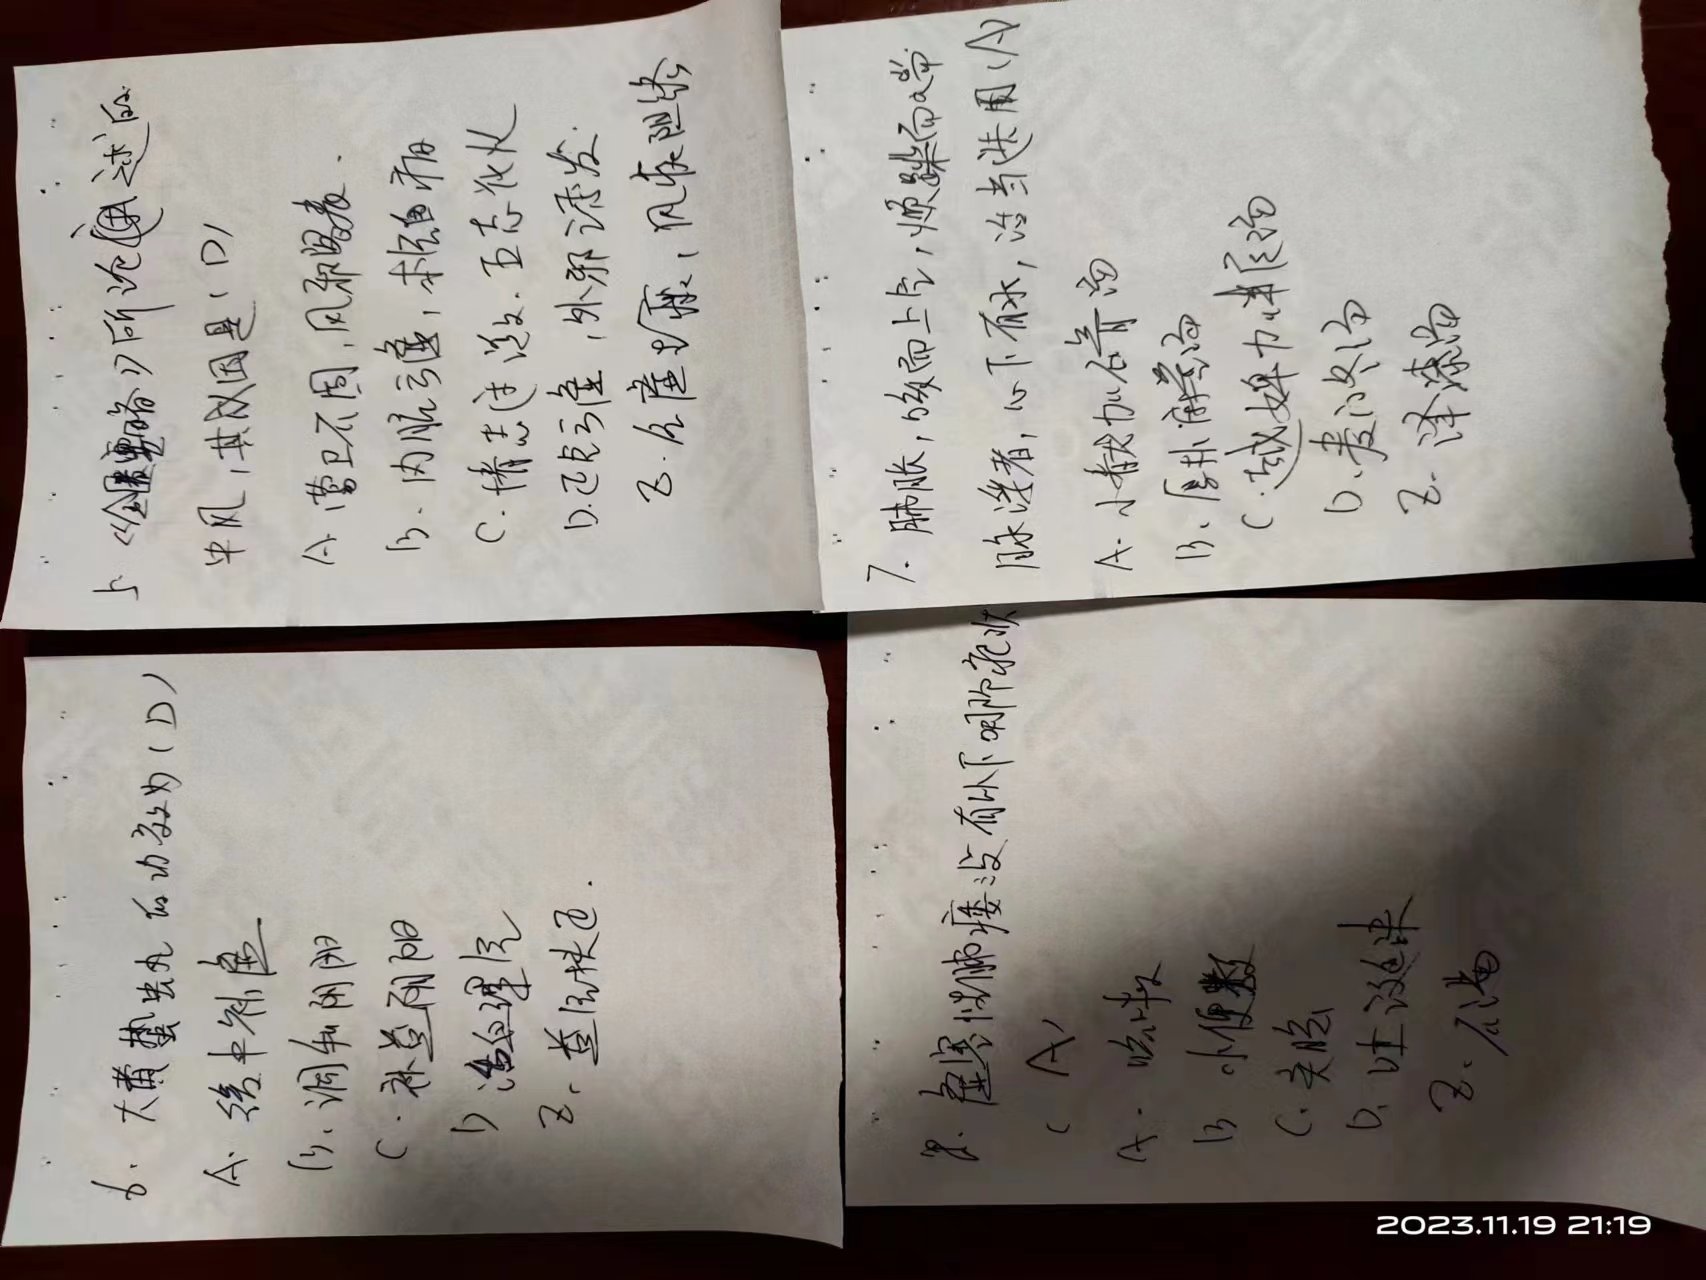 6. 大黄蛰虫丸的功效为(D)
A. 缓中补虚
B. 调和阴阳
C. 补益阴阳
D 活血理气
E. 益气扶正.
5.《金匮要略》所论述的
中风,其成因是(D)
A 营卫不固,风邪客表.
B. 内脏亏虚,本气自病
C. 情志过激.五志化火
D.正气亏虚,外邪诱发.
E. 气虚血瘀,风痰阻络
8. 虚寒性肺痿没有以下哪除症状
(A)
A. 咳嗽
B 小便数
C. 头眩
D. 吐涎沫
E. 不渴
7. 肺胀,咳而上气,烦躁而喘
脉浮者,心下有水,治当选用(A)
A. 小青龙加石膏汤
B. 厚朴麻黄汤
C.越婢加半夏汤
D.麦门冬汤
E. 泽漆汤
2023.11.19 21:19